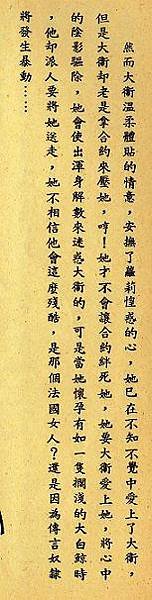 然而大衛溫柔體貼的情意，安撫了蘿莉惶惑的心，她已在不知不覺中愛上了大衛，
但是大衛却老是拿合約來壓她，哼！她才不會讓合約絆死她，她要大衛愛上她，將心中
的陰影驅除，她會使出渾身解數來迷惑大衛的，可是當她懷孕有如一隻擱淺的大白鯨時
，他却派人要將她送走，她不相信他會這麼殘酷，是那個法國女人？還是因為傳言奴隸
將發生暴動……